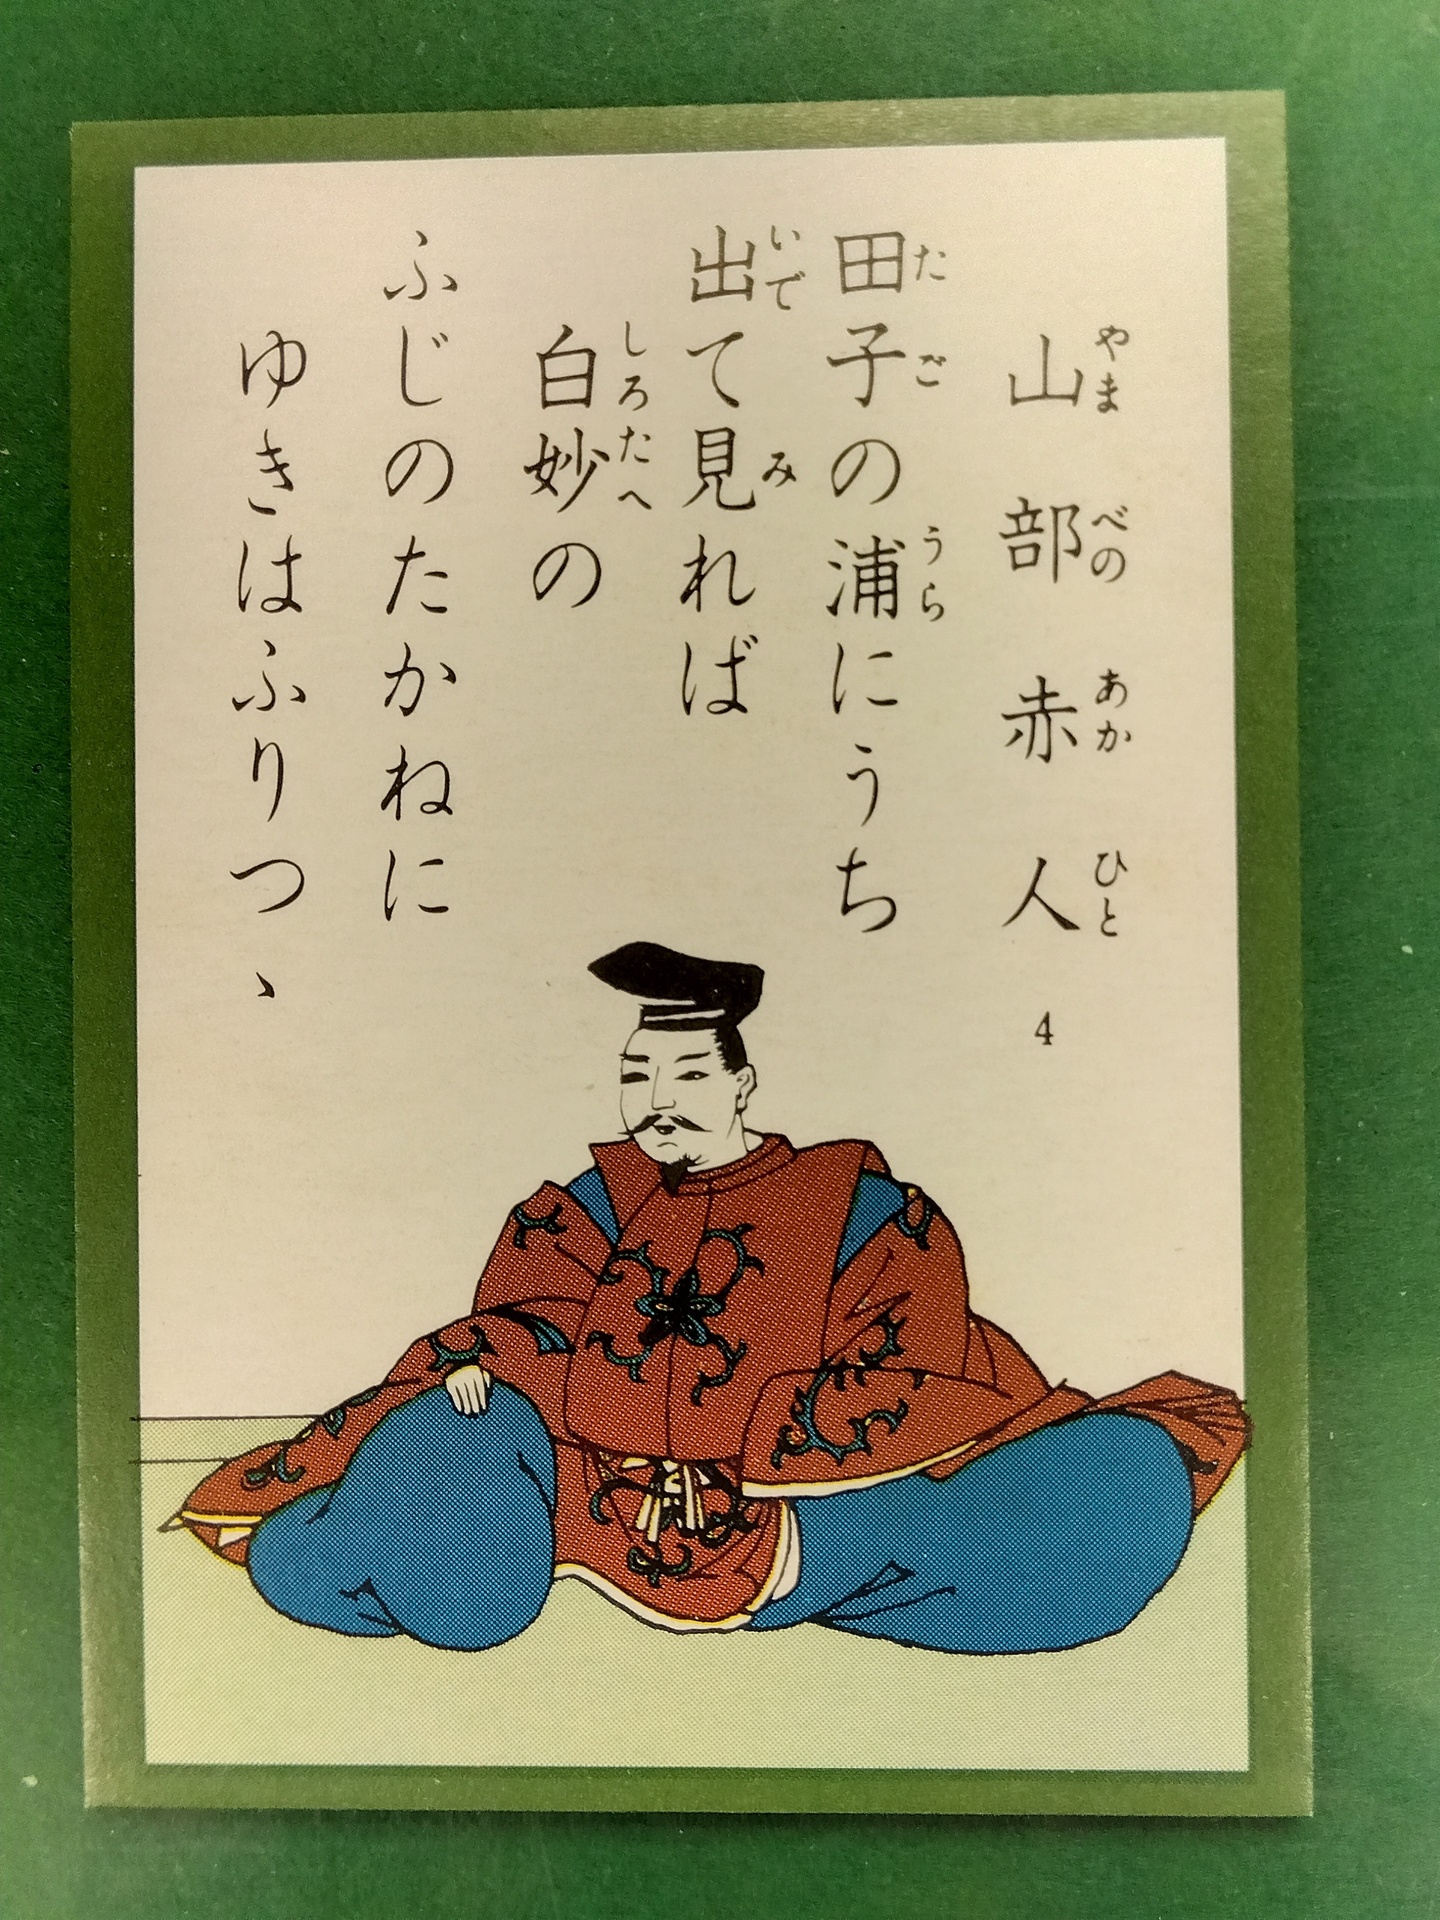 山部赤人 4
やまべのあかひと
田子の浦にうち
たごうら
出て見れば
いでみ
白妙の
しろたへ
ふじのたかねに
ゆきはふりつゝ